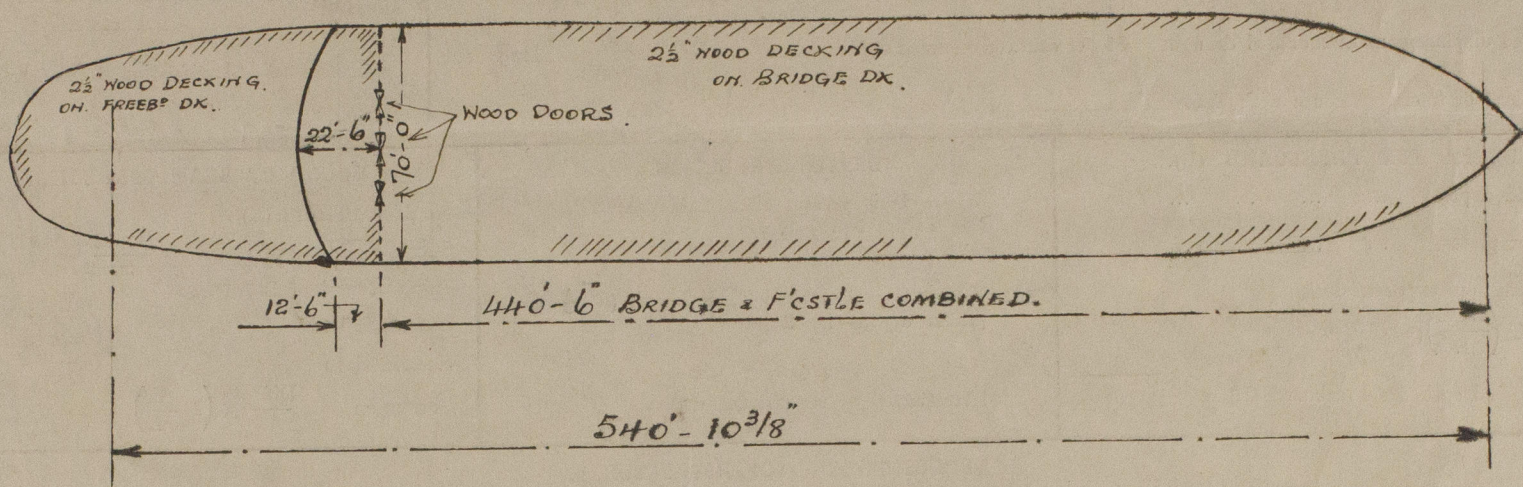 2½" WOOD DECKING.
ON FREEBD DK.
2½" WOOD DECKING
ON BRIDGE DK.
WOOD DOORS.
22'-6"
70'-0"
12'-6"
440'-6" BRIDGE & F'CSTLE COMBINED.
540'-10 3/8"